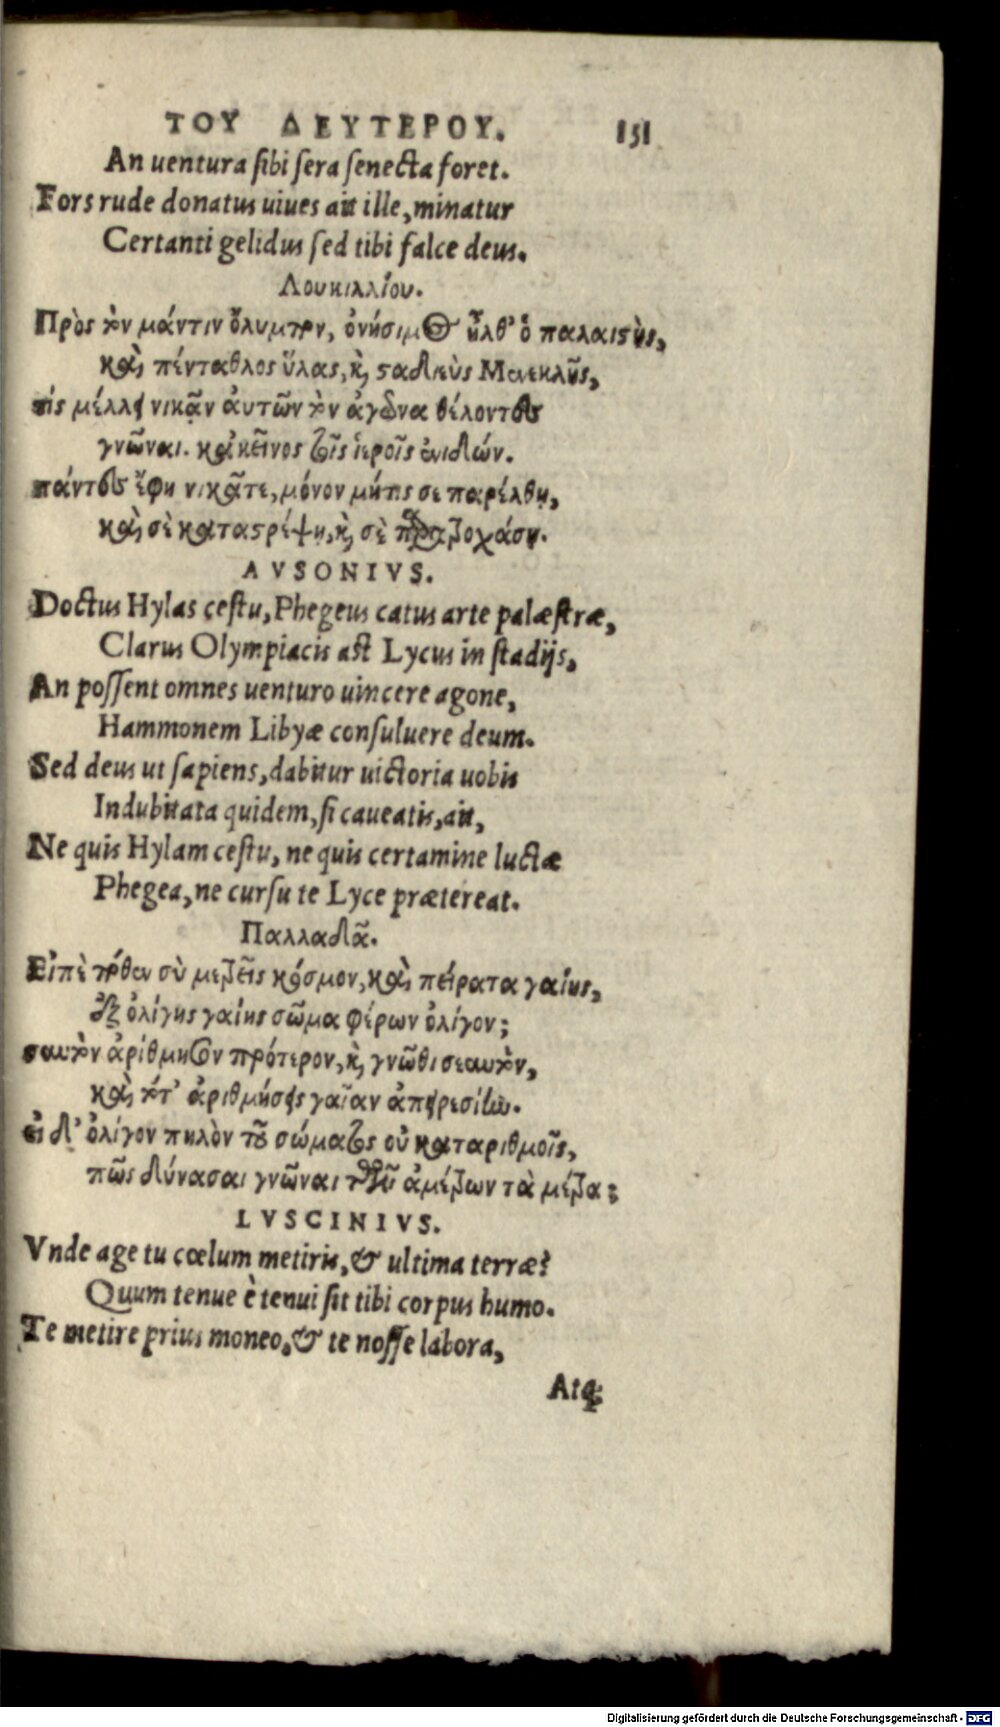 ΤΟΥ ΔΕΥΤΕΡΟΥ. 151
An uentura sibi sera senecta foret.
Fors rude donatus uiues ait ille, minatur
Certanti gelidus sed tibi falce deus.
Λουκιλλίου.
Πρὸς τὸν μάντιν ὄλυμπον, ὀνήσιμος ἦλθ' ὁ παλαιστὴς,
καὶ πένταθλος ὕλας, καὶ σταδιεὺς Μενεκλῆς,
τίς μέλλει νικᾷν αὐτῶν τὸν ἀγῶνα θέλοντες
γνῶναι. κᾀκεῖνος τοῖς ἱεροῖς ἐνιδών.
πάντες ἔφη νικᾶτε, μόνον μήτις σε παρέλθῃ,
καὶ σὲ καταστρέψῃ, καὶ σὲ παρατροχάσῃ.
AVSONIVS.
Doctus Hylas cęstu, Phegeus catus arte palæstræ,
Clarus Olympiacis ast Lycus in stadijs,
An possent omnes uenturo uincere agone,
Hammonem Libyæ consuluere deum.
Sed deus ut sapiens, dabitur uictoria uobis
Indubitata quidem, si caueatis, ait,
Ne quis Hylam cestu, ne quis certamine luctæ
Phegea, ne cursu te Lyce prætereat.
Παλλαδᾶ.
Εἰπὲ πόθεν σὺ μετρεῖς κόσμον, καὶ πείρατα γαίης,
ἐξ ὀλίγης γαίης σῶμα φέρων ὀλίγον;
σαυτὸν ἀρίθμησον πρότερον, καὶ γνῶθι σεαυτὸν,
καὶ τότ' ἀριθμήσεις γαῖαν ἀπειρεσίην.
εἰ δ' ὀλίγον πηλὸν τοῦ σώματος οὐ καταριθμοῖς,
πῶς δύνασαι γνῶναι τῶν ἀμέτρων τὰ μέτρα;
LVSCINIVS.
Vnde age tu cœlum metiris, & ultima terræ?
Quum tenue è tenui sit tibi corpus humo.
Te metire prius moneo, & te nosse labora,
Atq;
Digitalisierung gefördert durch die Deutsche Forschungsgemeinschaft - DFG